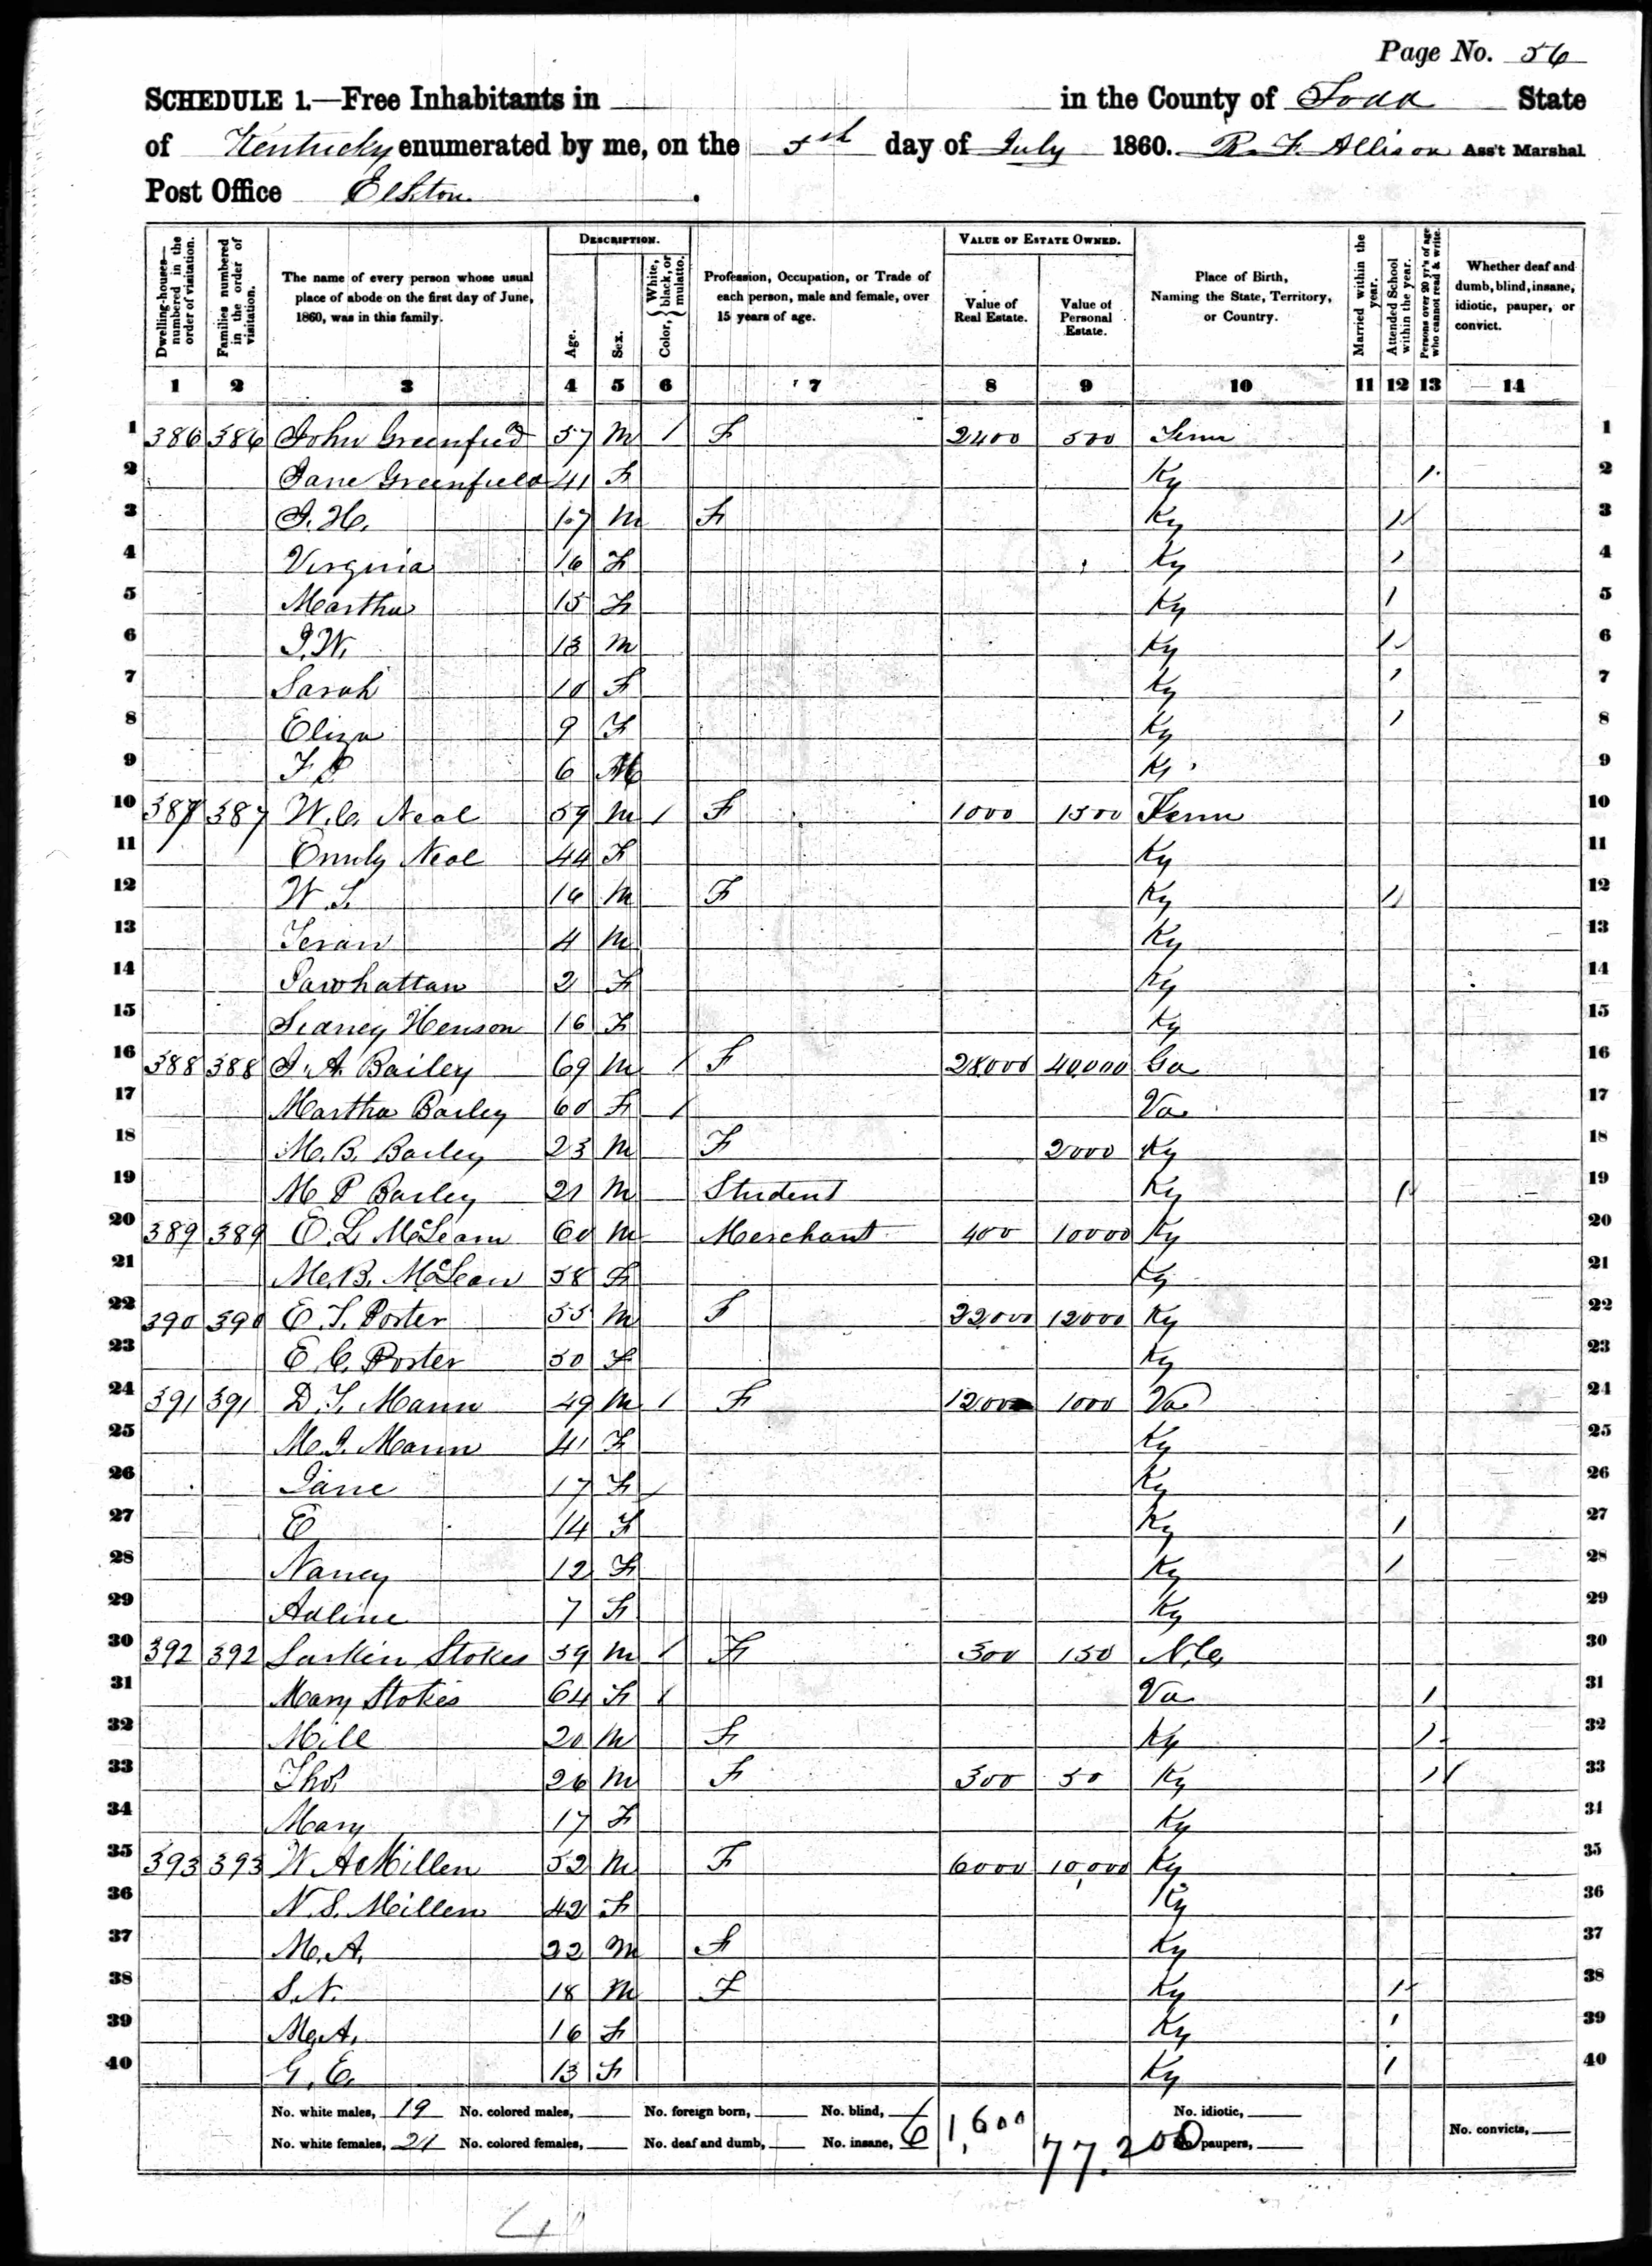 Page No. 56
SCHEDULE 1.—Free Inhabitants in in the County of Todd State
of Kentucky enumerated by me, on the 5th day of July 1860. R. F. Allison Ass't Marshal
Post Office Elkton.
Dwelling-houses—numbered in the order of visitation. Families numbered in the order of visitation. The name of every person whose usual place of abode on the first day of June, 1860, was in this family. Description. Age. Sex. Color, { White, black, or mulatto. Profession, Occupation, or Trade of each person, male and female, over 15 years of age. Value of Estate Owned. Value of Real Estate. Value of Personal Estate. Place of Birth, Naming the State, Territory, or Country. Married within the year. Attended School within the year. Persons over 20 yr's of age who cannot read & write. Whether deaf and dumb, blind, insane, idiotic, pauper, or convict.
1 2 3 4 5 6 7 8 9 10 11 12 13 14
1 386 386 John Greenfied 57 M 1 F 2400 500 Tenn 1
2 Jane Greenfield 41 F Ky 1 2
3 J. H. 17 M F Ky 1 3
4 Virginia 16 F Ky 1 4
5 Martha 15 F Ky 1 5
6 J. W. 13 M Ky 1 6
7 Sarah 10 F Ky 1 7
8 Eliza 9 F Ky 1 8
9 6 M Ky 9
10 387 387 W. C. Neal 59 M 1 F 1000 1500 Tenn 10
11 Emily Neal 44 F Ky 11
12 W. L. 16 M F Ky 1 12
13 4 M Ky 13
14 Pawhattan 2 F Ky 14
15 Sidney Henson 16 F Ky 15
16 388 388 J. A. Bailey 69 M 1 F 28000 40,000 Ga 16
17 Martha Bailey 60 F 1 Va 17
18 M. B. Bailey 23 M F 2000 Ky 18
19 M P Bailey 21 M Student Ky 1 19
20 389 389 E. L. McLean 60 M Merchant 400 10000 Ky 20
21 M. B. McLean 58 F Ky 21
22 390 390 E. T. Porter 55 M F 22000 12000 Ky 22
23 E C. Porter 50 F Ky 23
24 391 391 D. T. Mann 49 M 1 F 1200 1000 Va 24
25 M. J. Mann 41 F Ky 25
26 Jane 17 F Ky 26
27 E 14 F Ky 1 27
28 Nancy 12 F Ky 1 28
29 Adline 7 F Ky 29
30 392 392 Larkin Stokes 59 M 1 F 300 150 N.C. 30
31 Mary Stokes 64 F 1 Va 1 31
32 Mill 20 M F Ky 1 32
33 Thos. 26 M F 300 50 Ky 1 33
34 Mary 17 F Ky 34
35 393 393 W A Millen 52 M F 6000 10,000 Ky 35
36 N. S. Millen 42 F Ky 36
37 M. A. 22 M F Ky 37
38 S. N. 18 M F Ky 1 38
39 M. A. 16 F Ky 1 39
40 G. E. 13 F Ky 1 40
No. white males, 19 No. colored males, No. foreign born, No. blind, No. idiotic,
No. white females, 21 No. colored females, No. deaf and dumb, No. insane, 61,600 77.200 No. paupers, No. convicts,